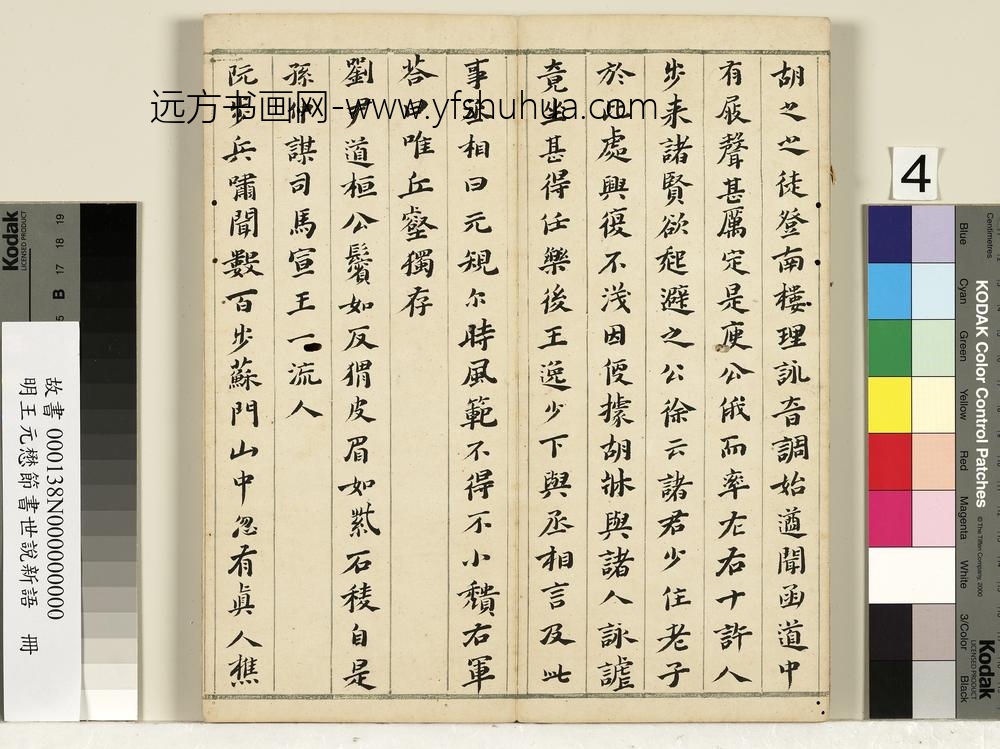 胡之之徒登南樓理詠音調始遒聞函道中
有屐聲甚厲定是庾公俄而率左右十許人
步来諸賢欲起避之公徐云諸君少住老子
於此處興復不淺因便據胡牀與諸人詠謔
竟坐甚得任樂後王逸少下與丞相言及此
事丞相曰元規尔時風範不得不小穨右軍
荅曰唯丘壑獨存
劉尹道桓公鬢如反猬皮眉如紫石稜自是
孫仲謀司馬宣王一流人
阮步兵嘯聞數百步蘇門山中忽有真人樵
远方书画网-www.yfshuhua.com
4
故書 000138N000000000
明王元懋節書世說新語 冊
Kodak
LICENSED PRODUCT
19
18
17
B
Centimetres
KODAK Color Control Patches
© The Tiffen Company, 2000
Blue
Cyan
Green
Yellow
Red
Magenta
White
3/Color
Black
Kodak
LICENSED PRODUCT